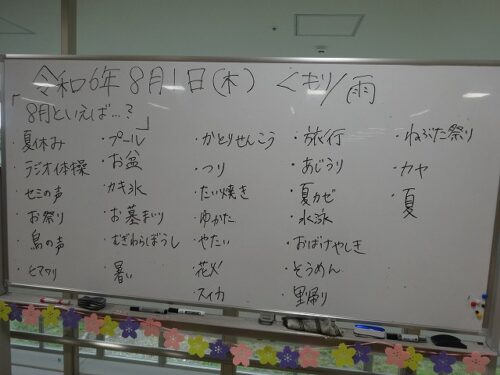 令和6年8月1日(木) くもり/雨
「8月といえば…?」
夏休み
・ラジオ体操
・セミの声
・お祭り
・鳥の声
・ヒマワリ
・プール
・お盆
・カキ氷
・お墓まいり
・むぎわらぼうし
・暑い
・かとりせんこう
・つり
・たい焼き
・ゆかた
・やたい
・花火
・スイカ
・旅行
・あじうり
・夏カゼ
・水泳
・おばけやしき
・そうめん
・里帰り
・ねぶた祭り
・カヤ
・夏